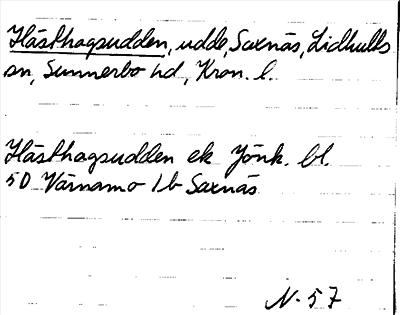 Hästhagsudden, udde, Saxnäs, Lidhults
sn, Sunnerbo hd, Kron. l.
Hästhagsudden ek Jönk. bl.
5D Värnamo 1b Saxnäs
N-57